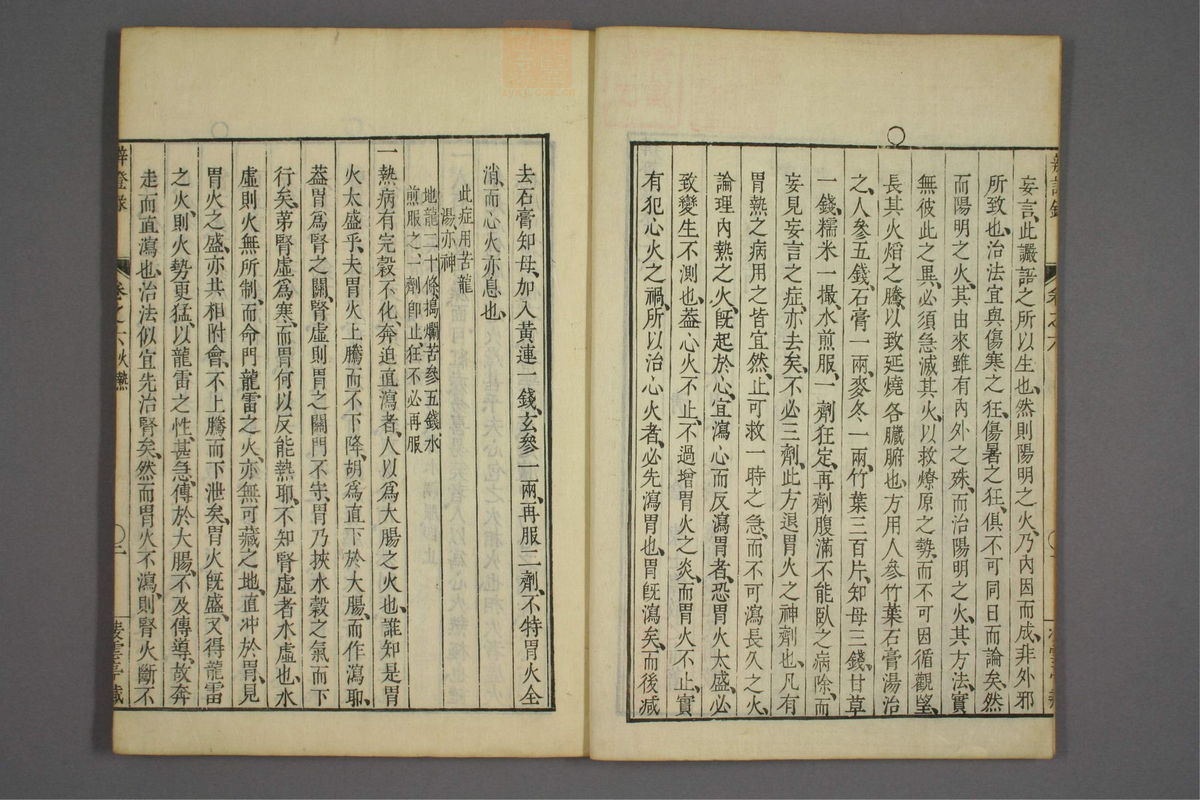 妄言、此讝語之所以生也、然則陽明之火、乃內因而成、非外邪
所致也、治法宜與傷寒之狂、傷暑之狂、俱不可同日而論矣、然
而陽明之火、其由來雖有內外之殊、而治陽明之火、其方法實
無彼此之異、必須急滅其火、以救燎原之勢、而不可因循觀望、
長其火熖之騰、以致延燒各臟腑也、方用人參竹葉石膏湯治
之、人參五錢、石膏一兩、麥冬一兩、竹葉三百片、知母三錢、甘草
一錢、糯米一撮、水煎服、一劑狂定、再劑腹滿不能臥之病除、而
妄見妄言之症、亦去矣、不必三劑、此方退胃火之神劑也、凡有
胃熱之病、用之皆宜、然止可救一時之急、而不可瀉長久之火、
論理內熱之火、旣起於心、宜瀉心而反瀉胃者、恐胃火太盛、必
致變生不測也、葢心火不止、不過增胃火之炎、而胃火不止、實
有犯心火之禍、所以治心火者、必先瀉胃也、胃旣瀉矣、而後減
去石膏知母、加入黃連一錢、玄參一兩、再服二劑、不特胃火全
消、而心火亦息也、
此症用苦龍
湯、亦神
地龍二十條搗爛苦參五錢水
煎服之一劑卽止狂不必再服
一熱病有完穀不化、奔迫直瀉者、人以爲大腸之火也、誰知是胃
火太盛乎、夫胃火上騰而不下降、胡爲直下於大腸、而作瀉耶、
葢胃爲腎之關、腎虛則胃之關門不守、胃乃挾水穀之氣而下
行矣、第腎虛爲寒、而胃何以反能熱耶、不知腎虛者、水虛也、水
虛則火無所制、而命門龍雷之火、亦無可藏之地、直冲於胃、見
胃火之盛、亦共相附會、不上騰而下泄矣、胃火旣盛、又得龍雷
之火、則火勢更猛、以龍雷之性、甚急、傳於大腸、不及傳導、故奔
走而直瀉也、治法似宜先治腎矣、然而胃火不瀉、則腎火斷不
卷之六